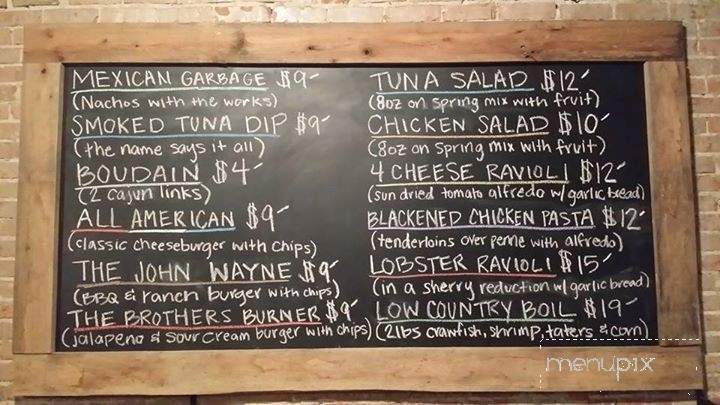 MEXICAN GARBAGE $9
(Nachos with the works)
SMOKED TUNA DIP $9
(the name says it all)
BOUDAIN $4
(2 cajun links)
ALL AMERICAN $9
(classic cheeseburger with chips)
THE JOHN WAYNE $9
(BBQ & ranch burger with chips)
THE BROTHERS BURNER $9
(jalapeno & sour cream burger with chips)
TUNA SALAD $12
(8oz on spring mix with fruit)
CHICKEN SALAD $10
(8oz on spring mix with fruit)
4 CHEESE RAVIOLI $12
(sun dried tomato alfredo w/ garlic bread)
BLACKENED CHICKEN PASTA $12
(tenderloins over penne with alfredo)
LOBSTER RAVIOLI $15
(in a sherry reduction w/ garlic bread)
LOW COUNTRY BOIL $19
(2lbs crawfish, shrimp, taters & corn)
menupix